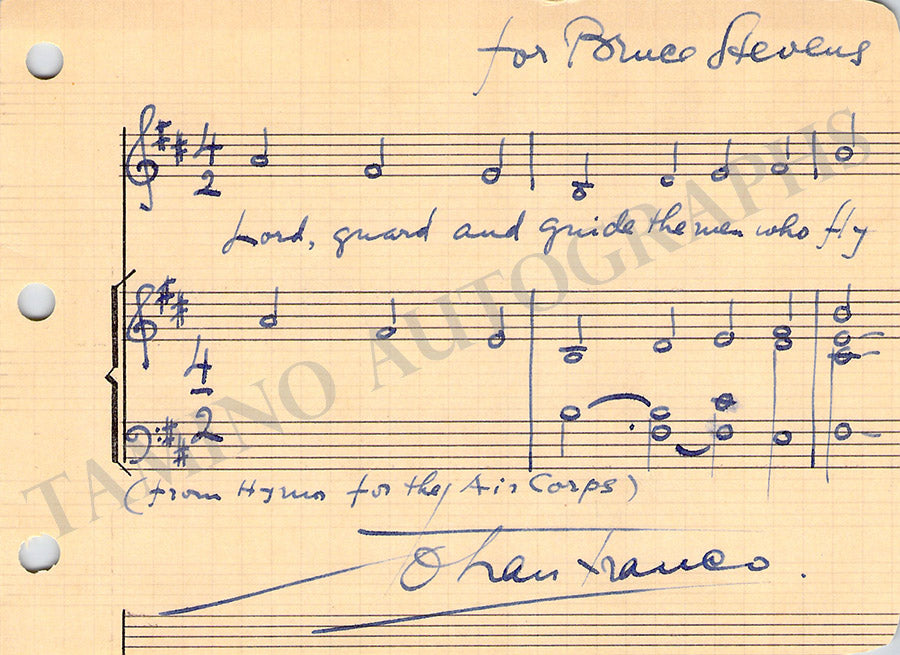 for Bruce Stevens
4
2
Lord, guard and guide the men who fly
4
2
(from Hymn for the Air Corps)
Johan Franco.
TAMINO AUTOGRAPHS